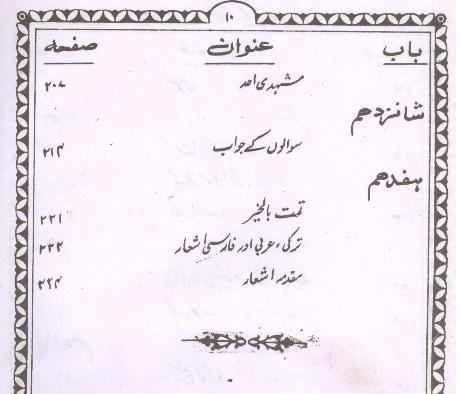 ۱۰
باب عنوان صفحہ
مشہدی احد ۲۰۷
شانزدہم
سوالوں کے جواب ۲۱۴
ہفدہم
تمت بالخیر ۲۲۱
ترکی، عربی اور فارسی اشعار ۲۲۲
مقدمہ اشعار ۲۲۴